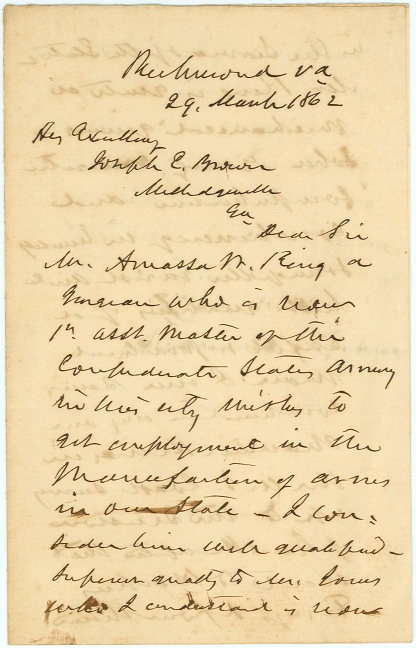 Richmond Va
29. March 1862
His Excellency
Joseph E. Brown
Milledgeville
Ga
Dear Sir
Mr. Amassa W. King a
Georgian who is now
1st asst. Master of the
Confederate States Armory
in this city wishes to
get employment in the
Manufaction of arms
in our State – I con=
sider him well qualified –
Superior greatly to Mr. Jones
who I understand is now